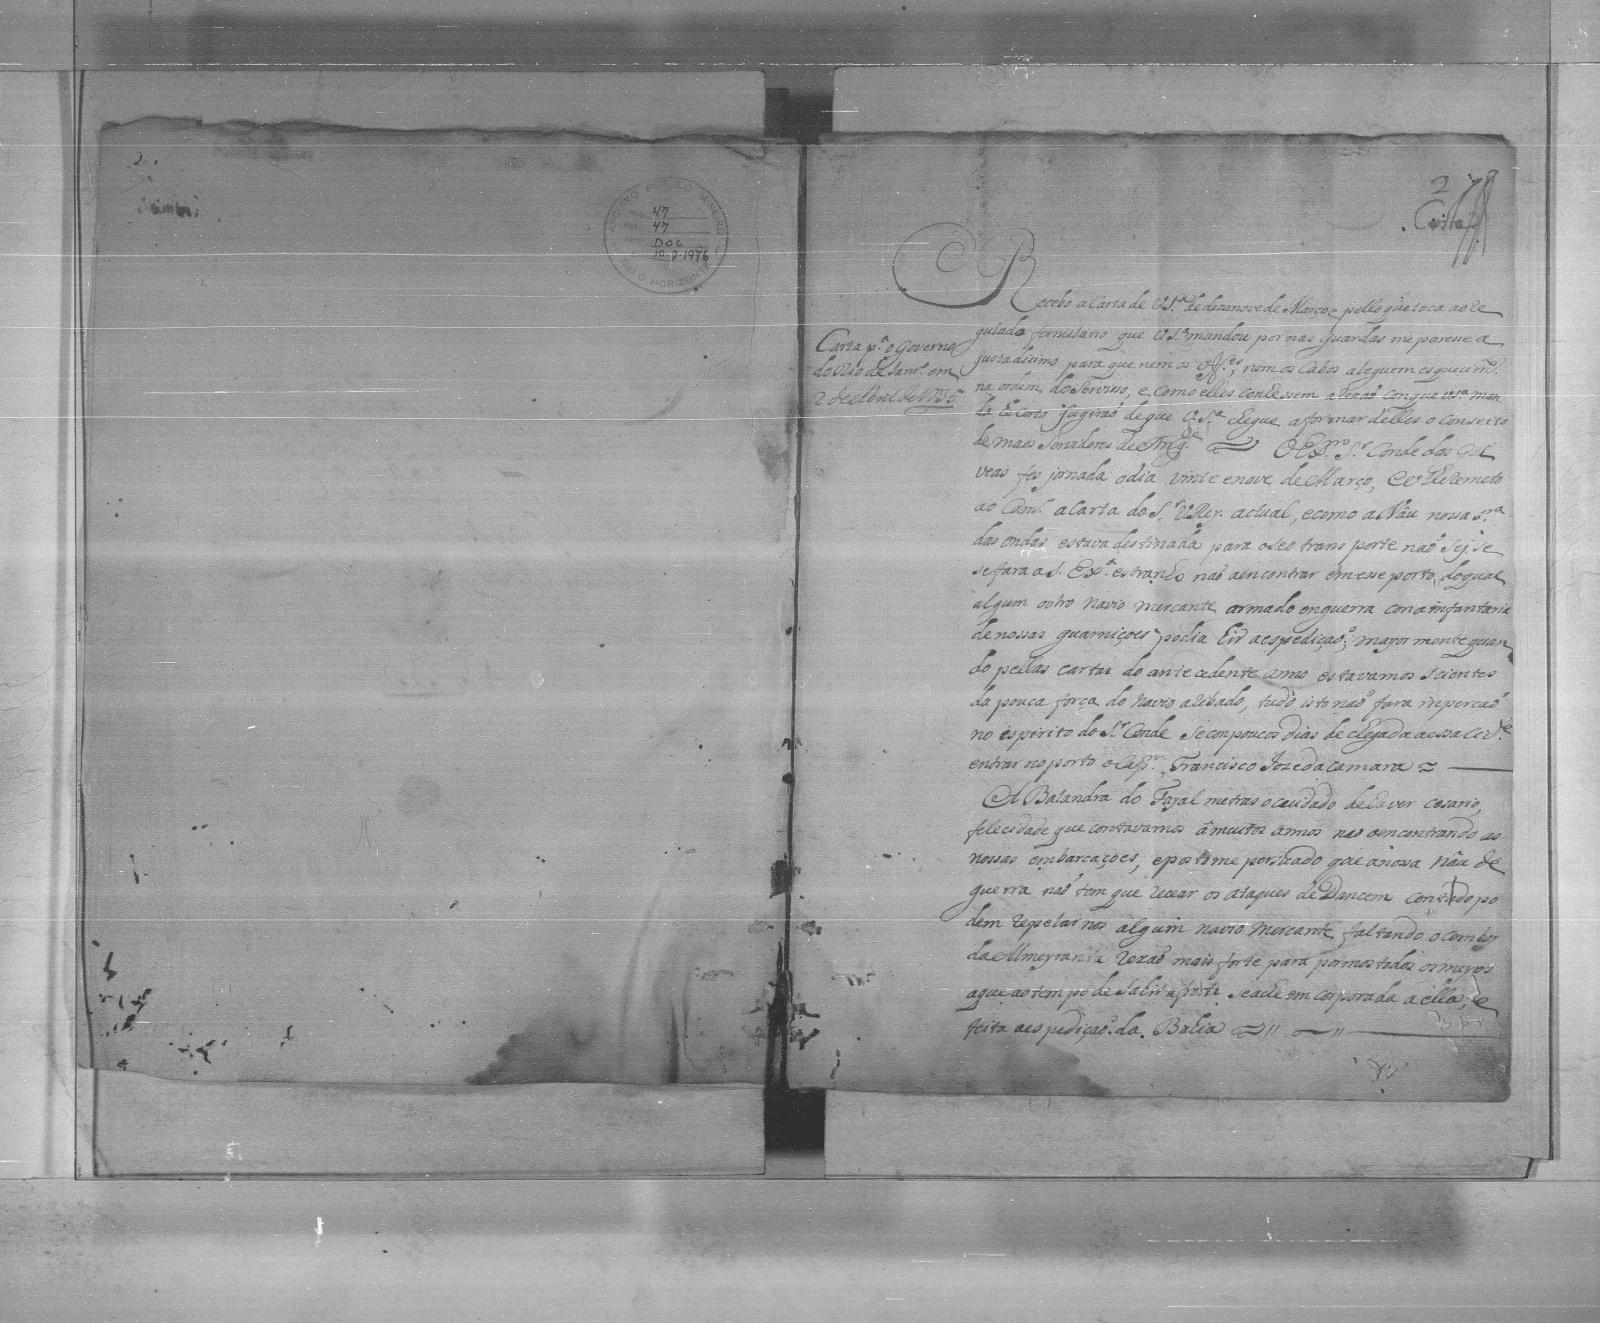 ARQUIVO PUBLICO MINEIRO
47
47
DOC
10-2-1976
BELO HORIZONTE
2
Costa
Carta p.ª o Governo
do Rio de Jan.ro em
2 de Abril de 1736
Recebo a Carta de V S.ª de dezanove de Março e pello que toca ao re
gulado formulario que V S.ª mandou por nas guardas me paresse a
justadisimo para que nem os Off.es, nem os Cabos aleguem esquecim.to
na ordem do Serviso, e como elles confessem a rezaõ con que V S.ª man
da he certo fugiraõ de que V S.ª chegue a formar delles o conseito
de maos Servidores de Mag.de O Ex.mo S.r Conde das Gal
veas fes jornada o dia vinte e nove de Março, remeto
ao Cam.º a Carta do S.r V Rey actual, e como a Náu nossa S.ra
das ondas estava destinada para o seo transporte naõ sej se
se fara a S. Ex.ª estranho naõ a encontrar em esse porto, do qual
algum outro navio mercante armado en guerra con a infantaria
de nossas guarniçoes podia hir a espediçaõ; mayormente quan
do pellas cartas do antecedente anno estavamos scientes
da pouca força do navio alihado, tudo isto naõ fara inpercaõ
no espirito do S.r Conde se con poucos dias de chegada a essa Cid.e
entrar no porto o Cap.m Francisco Joze da Camara
A Balandra do Fayal me tras o cuidado de haver cosario,
felecidade que contavamos á muitos annos naõ o encontrando as
nossas embarcaçoes, e posto me persuado que a nossa Náu de
guerra naõ tem que recear os ataques de Dancem contudo po
dem repelarnos algum navio mercante faltando o comboy
da Almeyranta rezaõ mais forte para pormos todos os meyos
a que ao tempo de sahir a frota se ache emcorporada a ella, e
feita a espediçaõ da Bahia